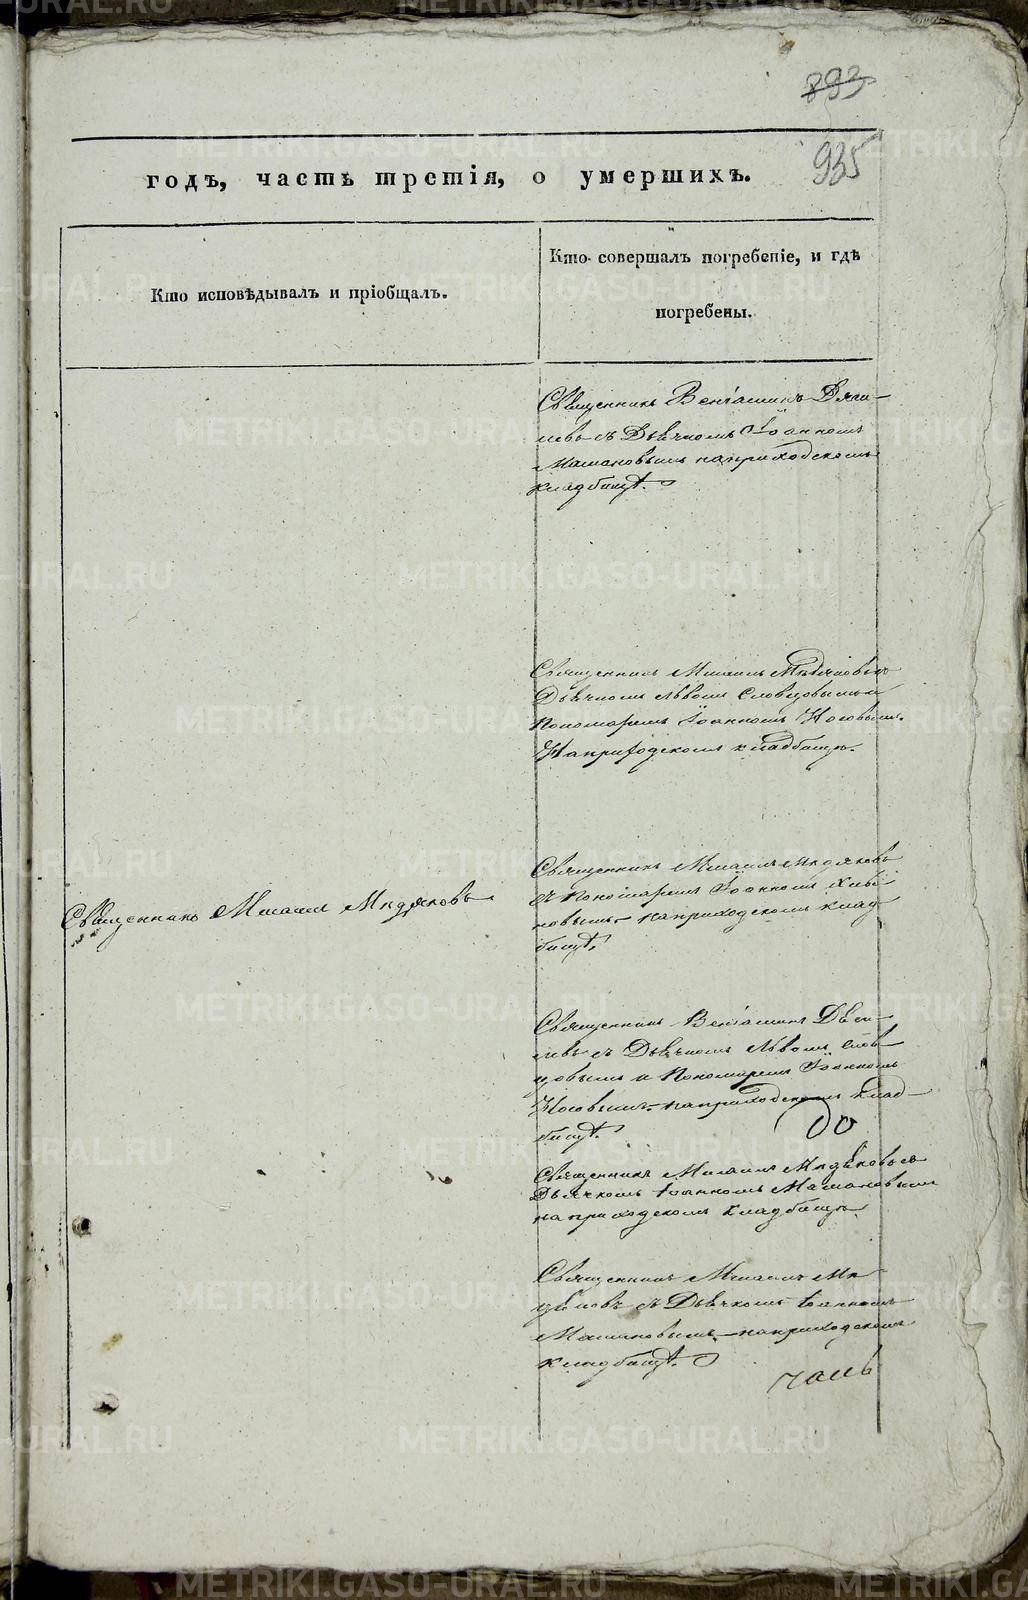 893
935
годъ, часть третія, о умершихъ.
Кто исповѣдывалъ и пріобщалъ.
Кто совершалъ погребеніе, и гдѣ
погребены.
Священникъ Веніаминъ Дяги-
левъ съ Дьячкомъ Іоанномъ
Мамановымъ на приходскомъ
кладбищѣ.
Священникъ Михаилъ
Дьячкомъ Львомъ Словцовымъ и
Пономаремъ Іоанномъ Носовымъ.
На приходскомъ кладбищѣ.
Священникъ Михаилъ
съ Пономаремъ Іоанномъ
новымъ на приходскомъ клад-
бищѣ.
Священникъ Михаилъ
Священникъ Веніаминъ Дяги-
левъ съ Дьячкомъ Львомъ Слов-
цовымъ и Пономаремъ Іоанномъ
Носовымъ на приходскомъ клад-
бищѣ.
Священникъ Михаилъ
Дьячкомъ Іоанномъ Мамановымъ
на приходскомъ кладбищѣ.
Священникъ Михаилъ
съ Дьячкомъ Іоанномъ
Мамановымъ на приходскомъ
кладбищѣ.
METRIKI.GASO-URAL.RU